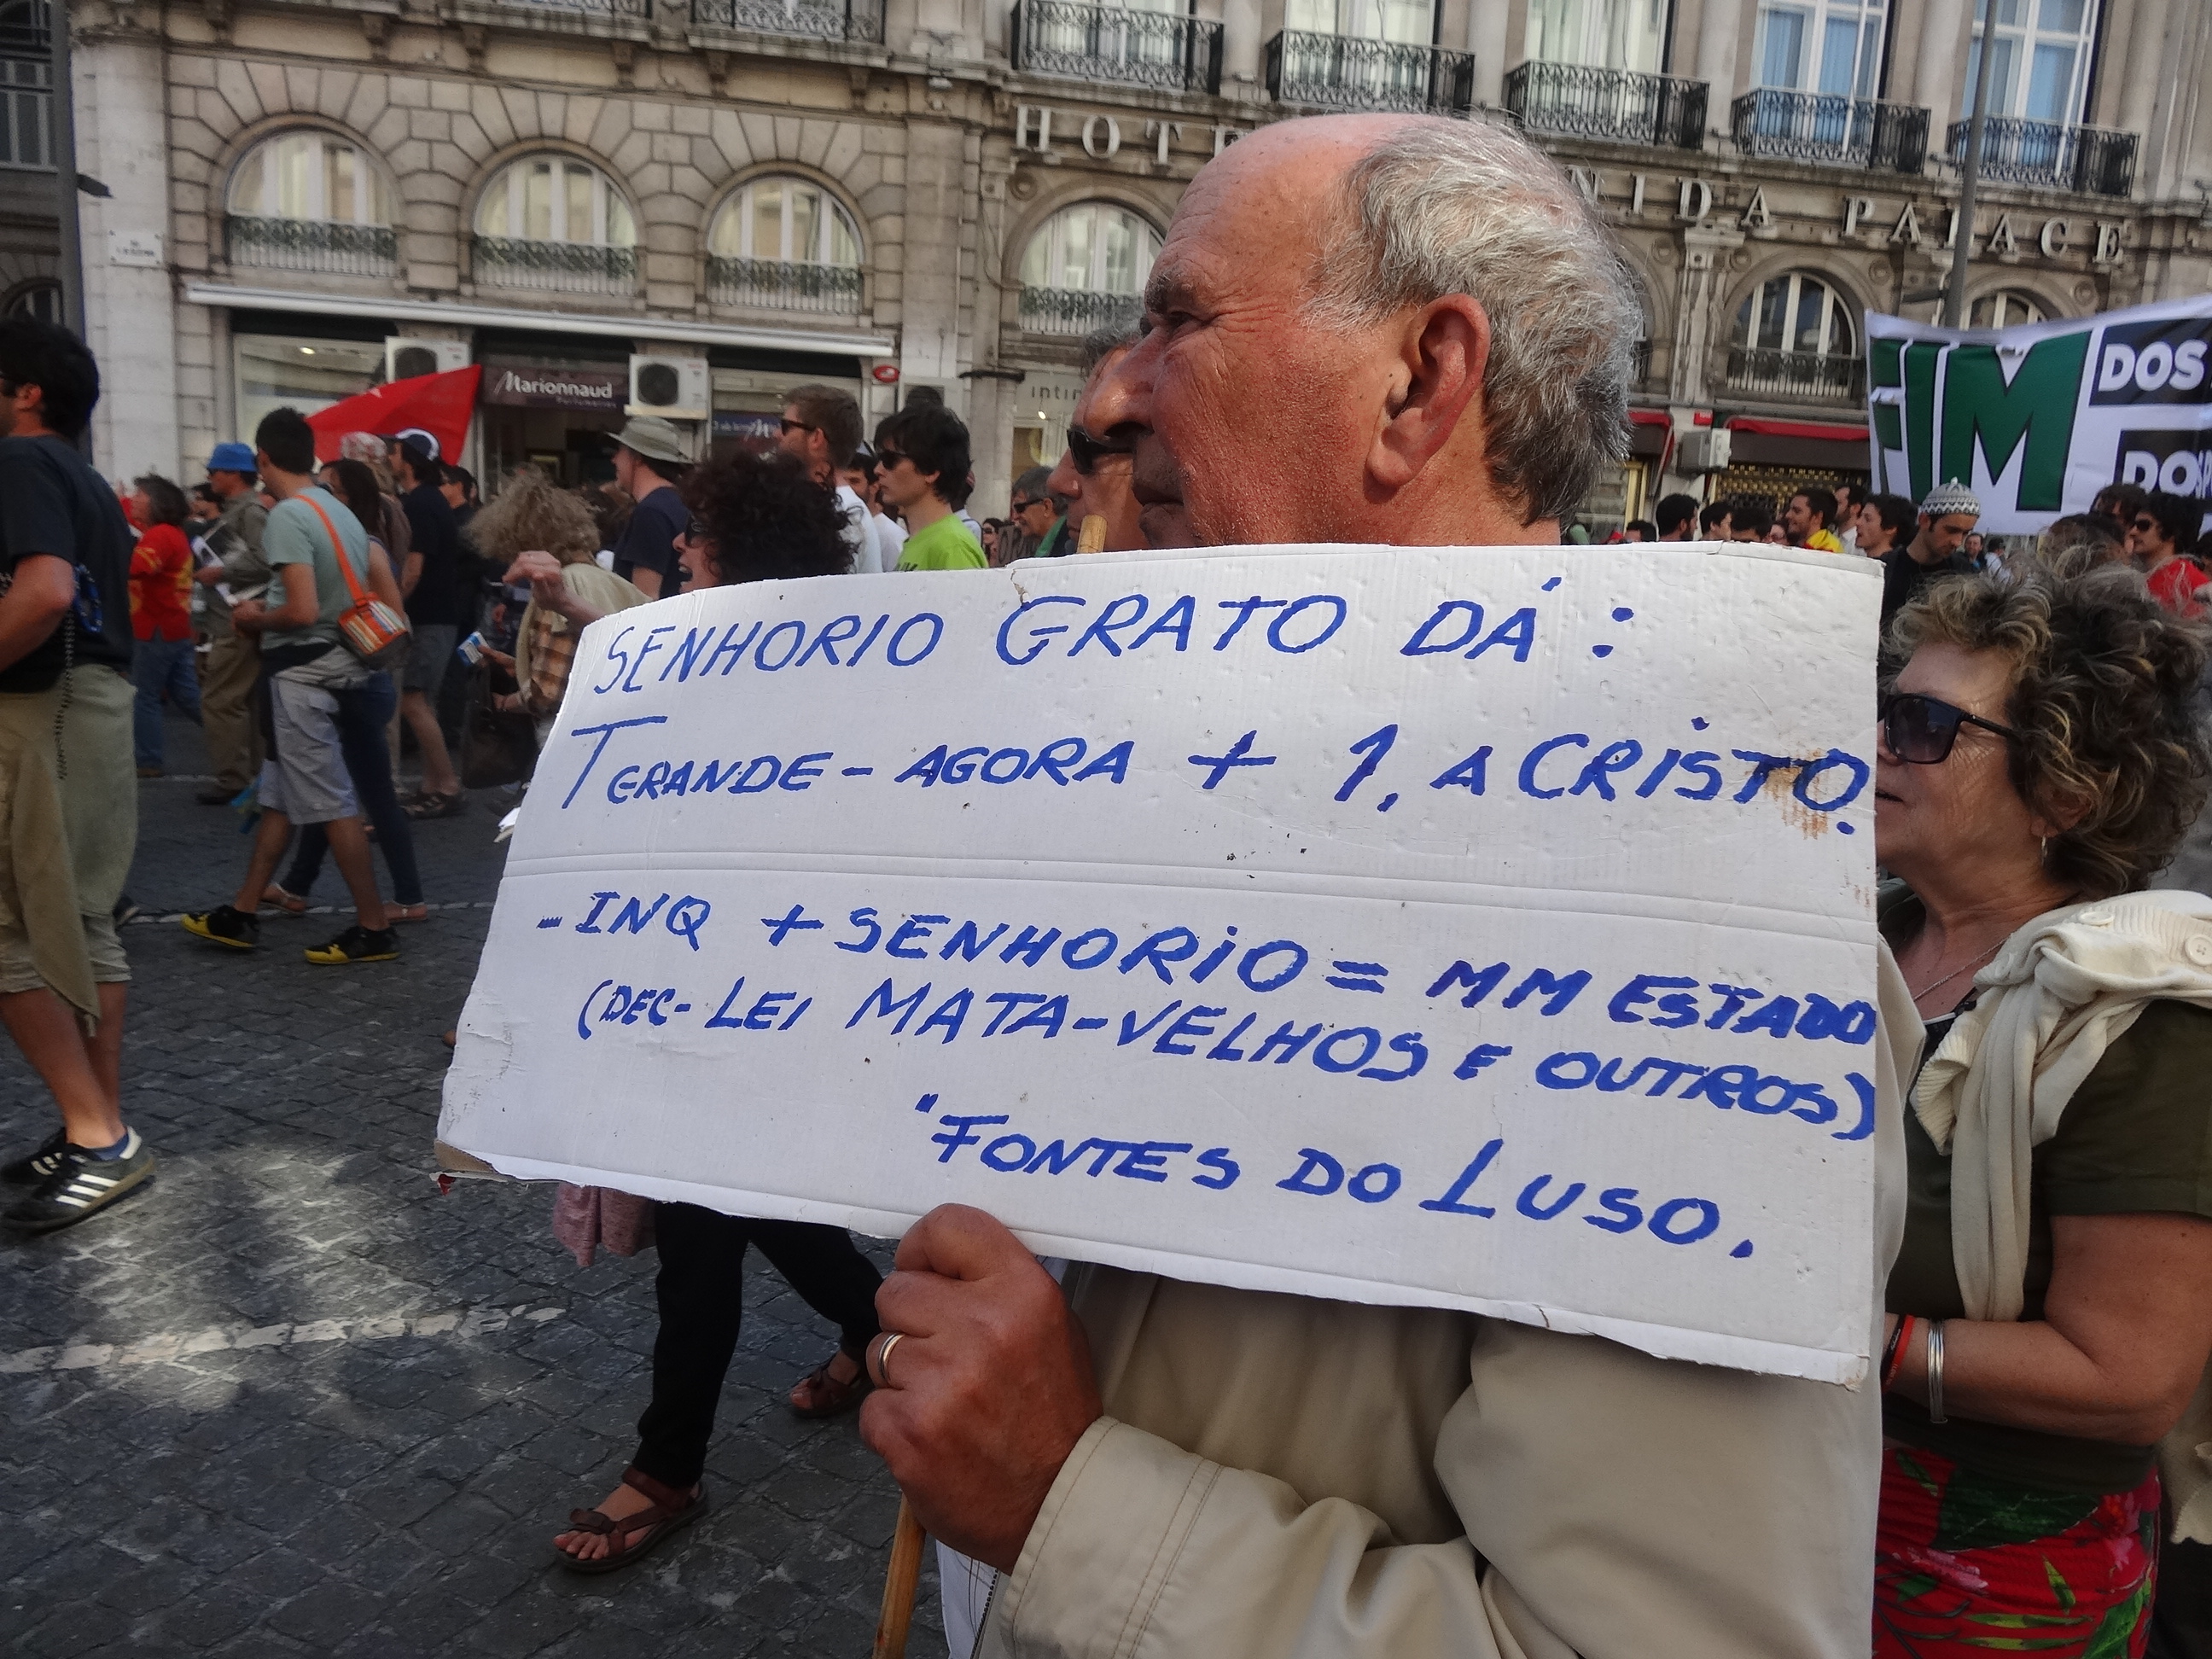 HOTE NIDA PALACE
Marionnaud
Parfumeries
intim
FIM DOS
DO
SENHORIO GRATO DÁ:
T GRANDE - AGORA + 1, A CRISTO.
- INQ + SENHORIO = MM ESTADO
(DEC-LEI MATA-VELHOS E OUTROS)
"FONTES DO LUSO.